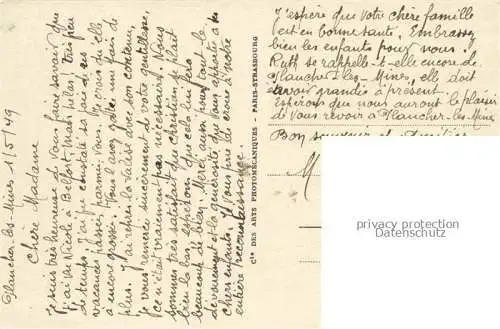 Plancher-les-Mines 1/5/49
Chère Madame
Je suis très heureuse de vous faire savoir que
j'ai vu Nicole à Belfort, mais hélas! très peu
de temps. J'ai pu constater sa joie de
vacances passées parmi vous. Je crois qu'elle
a encore grossi. Vous l'avez gâtée une fois de
plus. J'ai repris la valise avec son contenu,
je vous remercie sincèrement de votre gentillesse,
ce n'était vraiment pas nécessaire. Nous
sommes très satisfait que Christian se plait
bien là bas espérons que cela lui fera
beaucoup de bien. Merci aussi pour tout le
dévouement et la générosité que vous apportez à
chers enfants, je vous prie de croire à notre
entière reconnaissance.
Cie DES ARTS PHOTOMÉCANIQUES - PARIS-STRASBOURG
J'espère que votre chère famille
est en bonne santé. Embrassez
bien les enfants pour nous.
Ruth se rappelle-t-elle encore de
Plancher-les-Mines, elle doit
avoir grandis à présent.
Espérons que nous auront le plaisir
de vous revoir à Plancher-les-Mines
Bon souvenir et Amitiés
M
privacy protection
watermark